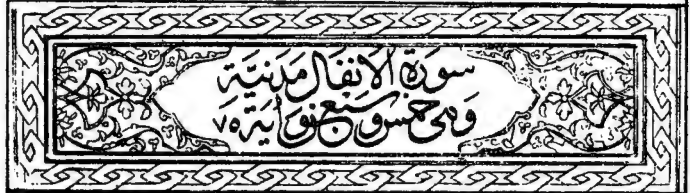 سورة الانفال مدنية
وهى خمس وسبعون آية ٧٥